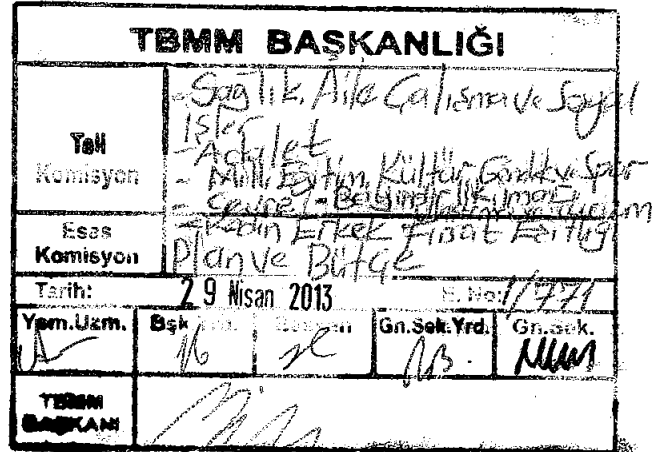 TBMM BAŞKANLIĞI
Tali Komisyon
- Sağlık, Aile Çalışma ve Sosyal İşler
- Adalet
- Milli Eğitim, Kültür Gençlik ve Spor
- Çevre - Bayındırlık İmar
- Kadın Erkek Fırsat Eşitliği
Esas Komisyon
Plan ve Bütçe
Tarih: 29 Nisan 2013 E. No: 1/771
Yas.Uzm. Bşk. Gn.Sek.Yrd. Gn.Sek.
TBMM
BAŞKANI